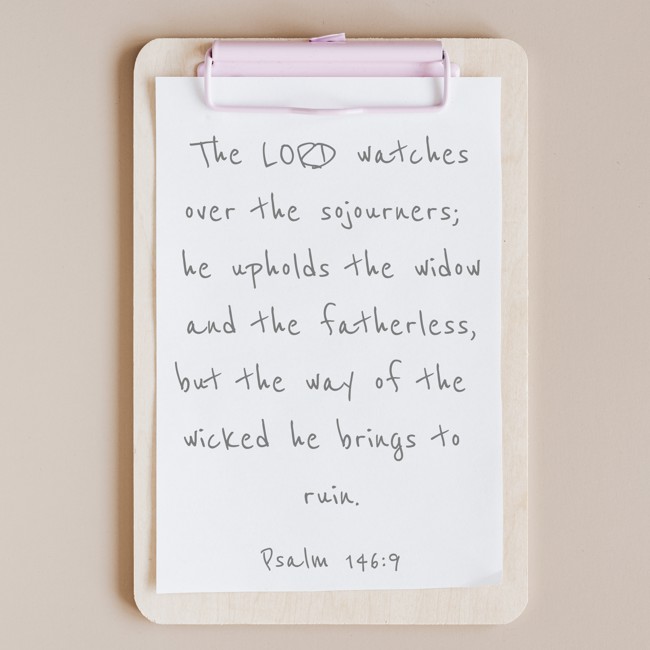 The LORD watches
over the sojourners;
he upholds the widow
and the fatherless,
but the way of the
wicked he brings to
ruin.
Psalm 146:9